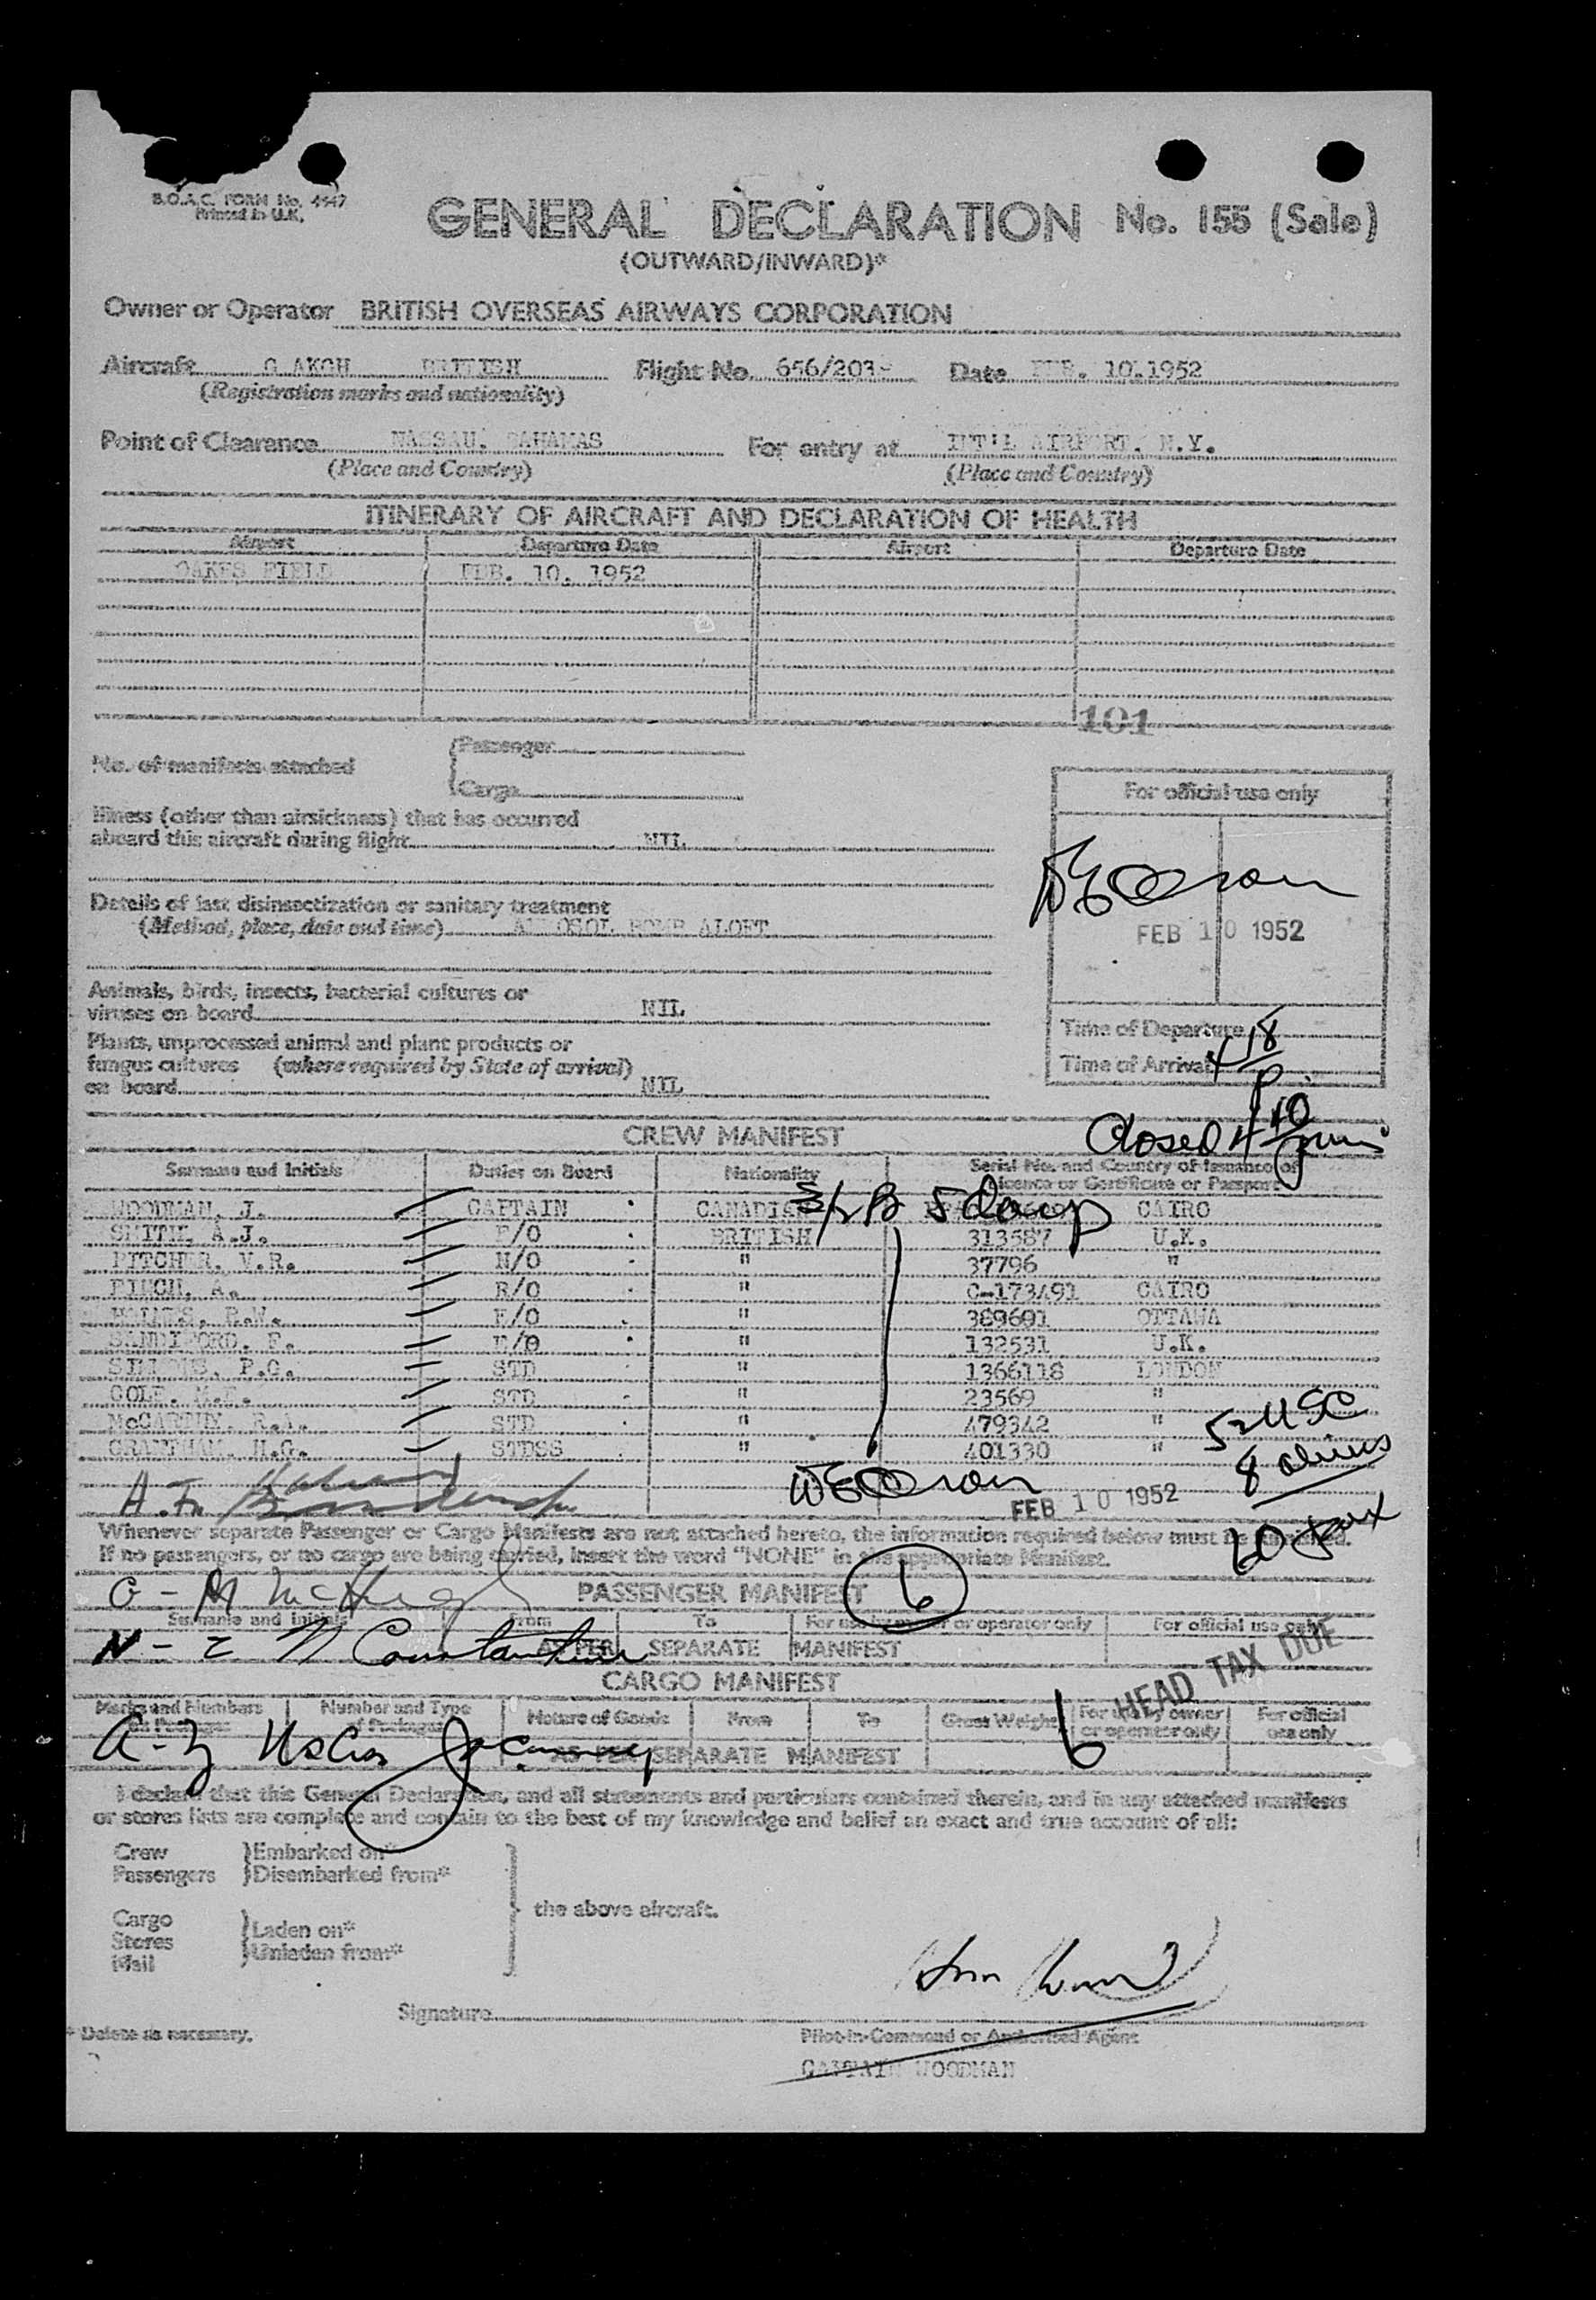 B.O.A.C. FORM No. 4447
Printed in U.K.
GENERAL DECLARATION No. 155 (Sale)
(OUTWARD/INWARD)*
Owner or Operator BRITISH OVERSEAS AIRWAYS CORPORATION
Aircraft G AKGH BRITISH Flight No. 656/203 Date FEB. 10.1952
(Registration marks and nationality)
Point of Clearance NASSAU, BAHAMAS For entry at INT'L AIRPORT, N.Y.
(Place and Country) (Place and Country)
ITINERARY OF AIRCRAFT AND DECLARATION OF HEALTH
Airport Departure Date Airport Departure Date
OAKES FIELD FEB. 10, 1952
101
No. of manifests attached
Passenger
Cargo
For official use only
Illness (other than airsickness) that has occurred
aboard this aircraft during flight NIL
Details of last disinsectization or sanitary treatment
(Method, place, date and time) AEROSOL BOMB ALOFT
FEB 10 1952
Animals, birds, insects, bacterial cultures or
viruses on board NIL
Time of Departure
Plants, unprocessed animal and plant products or
fungus cultures (where required by State of arrival)
on board NIL
Time of Arrival 4 18 p
Closed 4 40 pm
CREW MANIFEST
Surname and Initials Duties on Board Nationality Serial No. and Country of Issuance of
Licence or Certificate or Passport
WOODMAN, J. CAPTAIN CANADIAN CAIRO
SMITH, A.J. F/O BRITISH 313587 U.K.
PITCHER, V.R. N/O " 37796 "
FINCH, A. R/O " C-173491 CAIRO
R.W. E/O " 389691 OTTAWA
SANDIFORD, F. E/O " 132531 U.K.
SIMMONS, P.G. STD " 1366118 LONDON
COLE, M.E. STD " 23569 "
McCARTHY, R.A. STD " 479342 "
GRANTHAM, H.G. STDSS " 401330 "
52 USC
8 aliens
60 pax
FEB 10 1952
Whenever separate Passenger or Cargo Manifests are not attached hereto, the information required below must be furnished.
If no passengers, or no cargo are being carried, insert the word "NONE" in the appropriate Manifest.
PASSENGER MANIFEST 6
Surname and Initials From To For use by owner or operator only For official use only
AS PER SEPARATE MANIFEST
HEAD TAX DUE
CARGO MANIFEST
6
Marks and Numbers on Packages Number and Type of Packages Nature of Goods From To Gross Weight For use by owner or operator only For official use only
AS PER SEPARATE MANIFEST
I declare that this General Declaration, and all statements and particulars contained therein, and in any attached manifests
or stores lists are complete and contain to the best of my knowledge and belief an exact and true account of all:
Crew Embarked on*
Passengers Disembarked from*
the above aircraft.
Cargo
Stores Laden on*
Mail Unladen from*
Signature
* Delete as necessary.
Pilot-in-Command or Authorised Agent
CAPTAIN WOODMAN